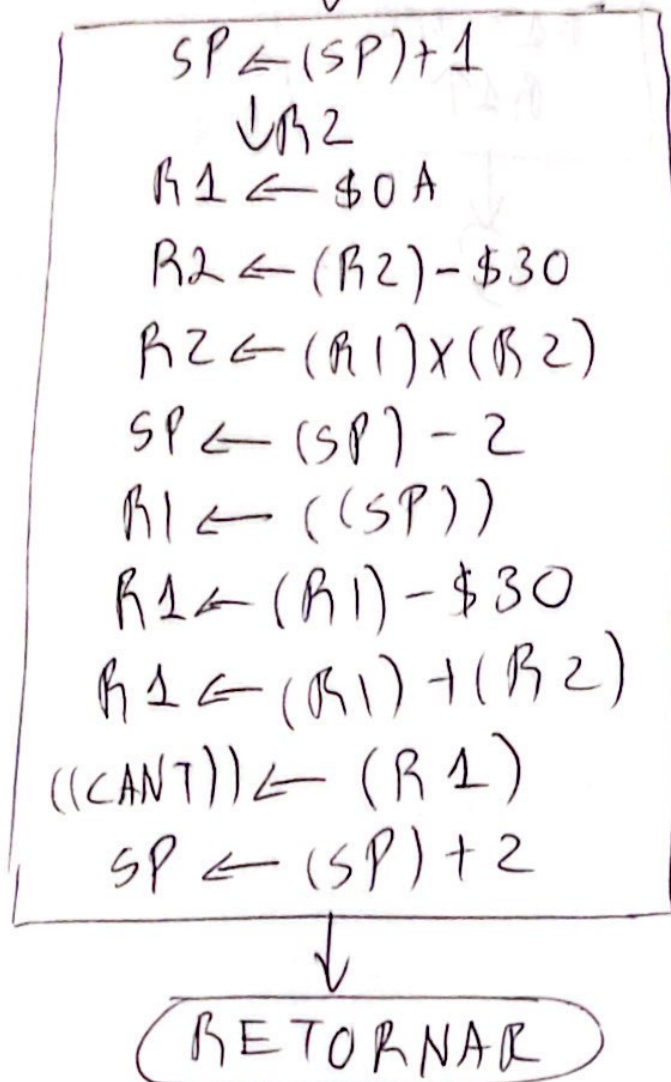 SP ← (SP) + 1
↓ R2
R1 ← $0A
R2 ← (R2) - $30
R2 ← (R1) x (R2)
SP ← (SP) - 2
R1 ← ((SP))
R1 ← (R1) - $30
R1 ← (R1) + (R2)
((CANT)) ← (R1)
SP ← (SP) + 2
RETORNAR